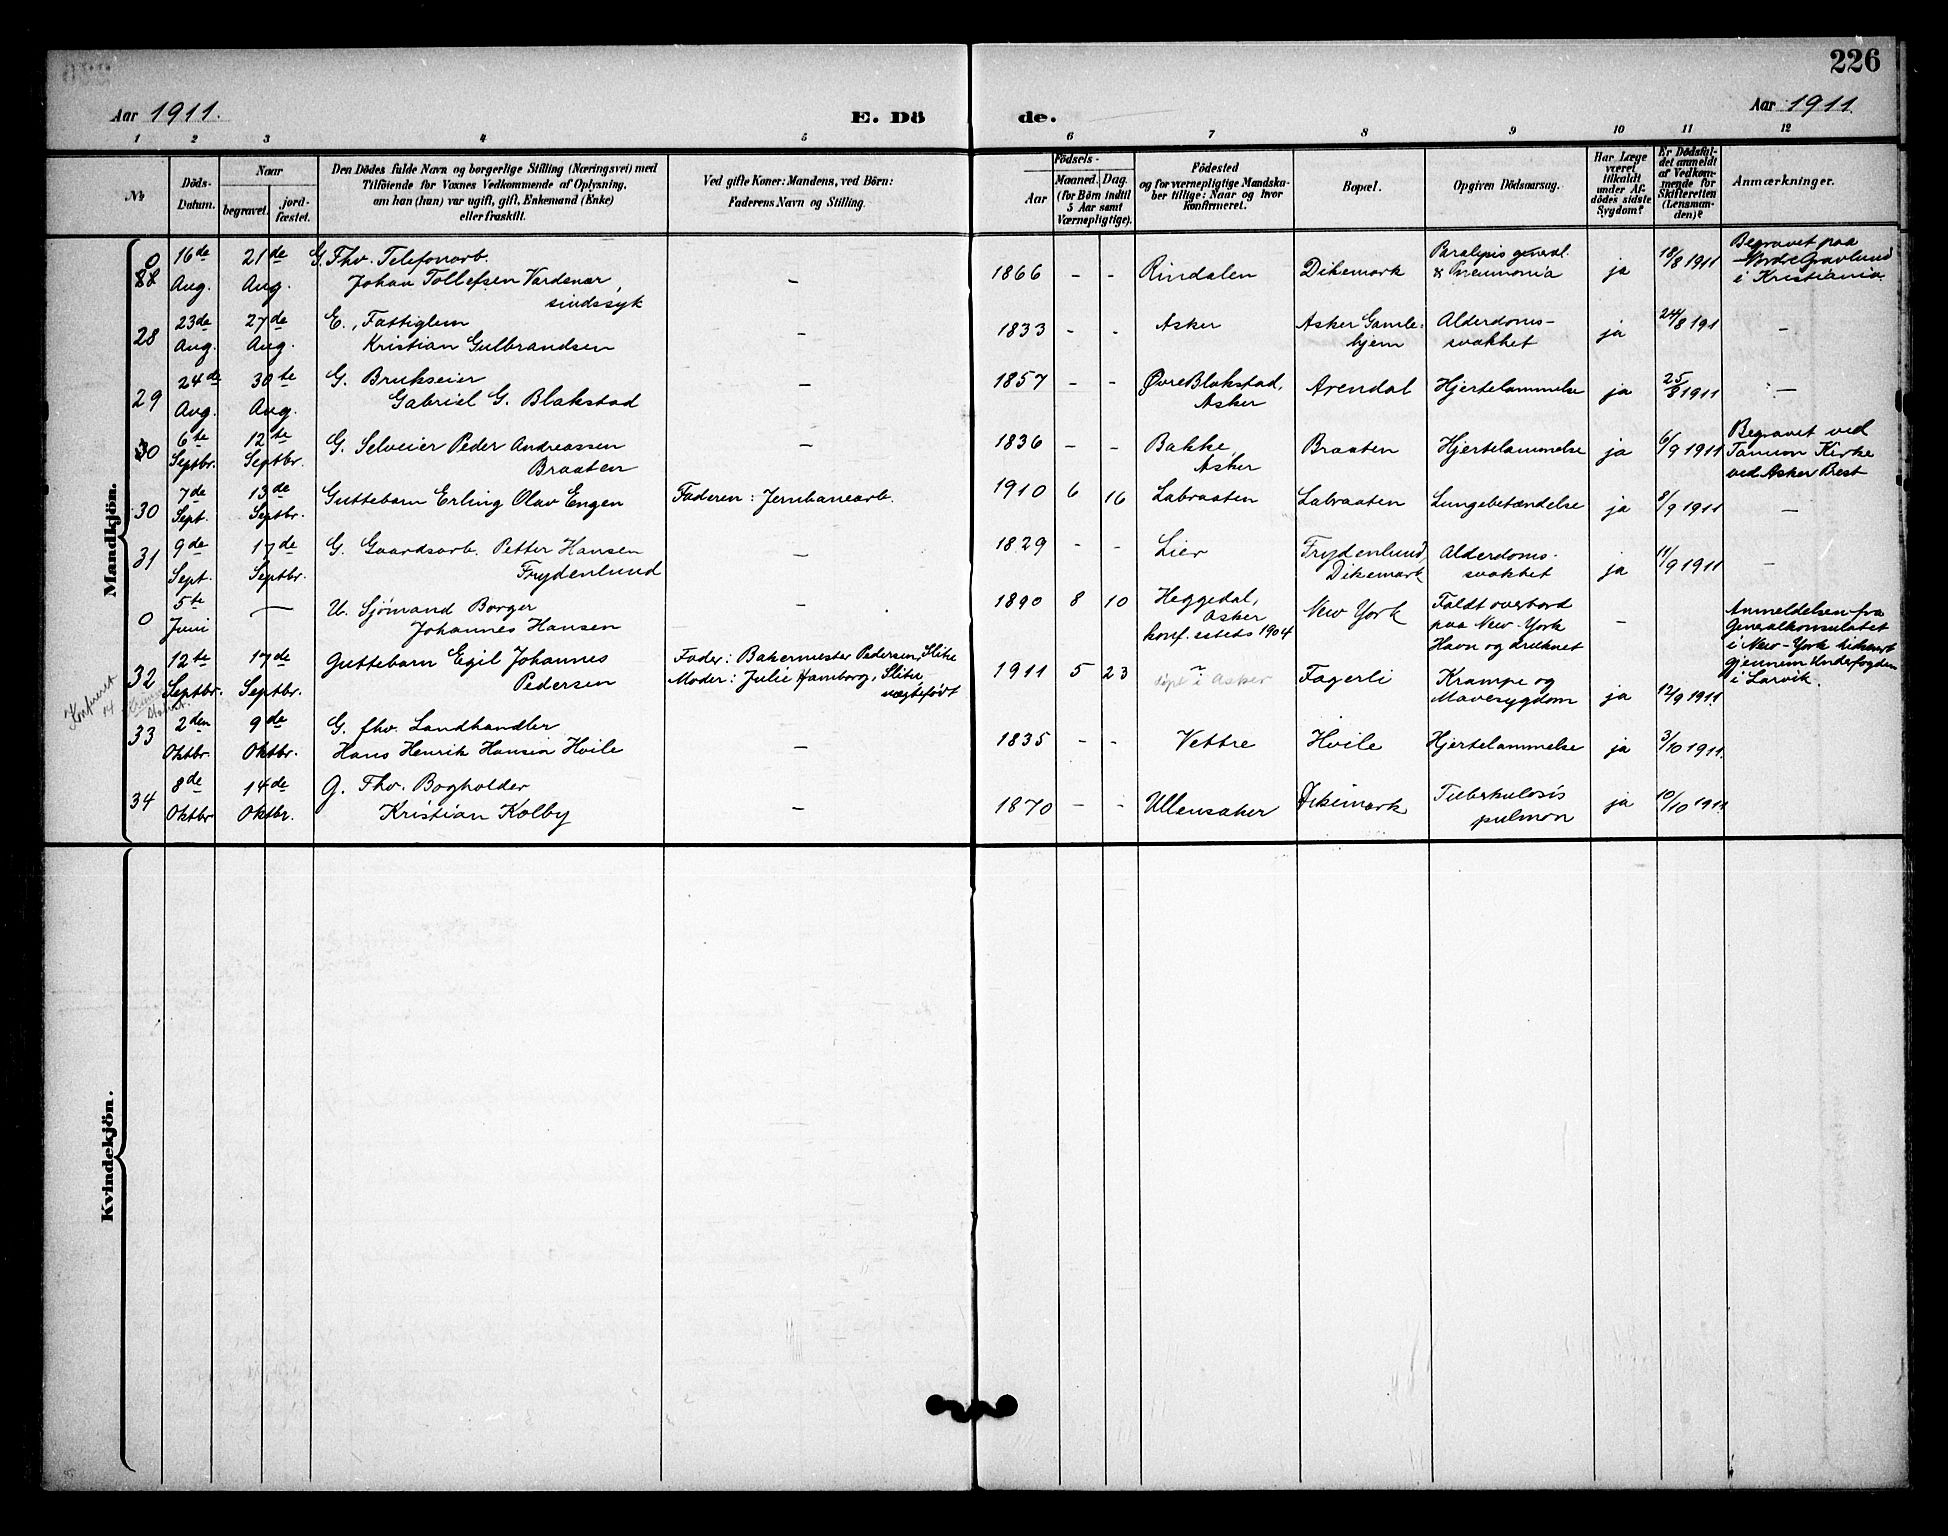 226
Aar 1911.
E. Dö de.
Aar 1911.
1 2 3 4 5 6 7 8 9 10 11 12
No
Döds-
Datum.
Naar
begravet.
jord-
fæstet.
Den Dödes fulde Navn og borgerlige Stilling (Næringsvei) med
Tilföiende for Voxnes Vedkommende af Oplysning,
om han (hun) var ugift, gift, Enkemand (Enke)
eller fraskilt.
Ved gifte Koner: Mandens, ved Börn:
Faderens Navn og Stilling.
Födsels-
Aar
Maaned. Dag.
(for Börn indtil
5 Aar samt
Værnepligtige).
Födested
og for værnepligtige Mandska-
ber tillige: Naar og hvor
konfirmeret.
Bopæl.
Opgiven Dödsaarsag.
Har Læge
været
tilkaldt
under Af-
dödes sidste
Sygdom?
Er Dödsfal-
det anmeldt
af Vedkom-
mende for
Skifteretten
(Lensman-
den)?
Anmærkninger.
Mandkjön.
0
16de
Aug.
21de
Aug.
G. Fhv. Telefonarb.
Johan Tollefsen Vardsnær,
sindssyk
–
1866 – –
Rindalen
Dikemark
Paralysis general.
& Pneumonia
ja
18/8 1911
Begravet paa
Nordre Gravlund
i Kristiania.
28
23de
Aug.
27de
Aug.
E., Fattiglem
Kristian Gulbrandsen
–
1833 – –
Asker
Asker Gamle-
hjem
Alderdoms-
svakhet
ja
24/8 191
–
29
24de
Aug.
30te
Aug.
G. Brukseier
Gabriel G. Blakstad
–
1857 – –
Øvre Blakstad,
Asker
Arendal
Hjertelammelse
ja
25/8 1911
–
30
6te
Septbr.
12te
Septbr.
G. Selveier Peder Andreassen
Braaten
–
1836 – –
Bakke,
Asker
Braaten
Hjertelammelse
ja
6/9 1911
Begravet ved
Tanum Kirke
ved Asker Prest
30
7de
Sept.
13de
Septbr.
Guttebarn Erling Olav Engen
Faderen: Jernbanearb.
1910 6 16
Labraaten
Labraaten
Lungebetændelse
ja
8/9 1911
–
31
9de
Sept.
17de
Septbr.
G. Gaardsarb. Petter Hansen
Frydenlund
–
1829 – –
Lier
Frydenlund,
Dikemark
Alderdoms-
svakhet
ja
11/9 1911
–
0
5te
Juni
–
U. Sjömand Borger
Johannes Hansen
–
1890 8 10
Heggedal,
Asker
konf. estets 1904
New York
Faldt overbord
paa New-York
Havn og druknet
–
Anmeldelsen fra
Generalkonsulatet
i New-York tilsendt
gjennem Underfogden
i Larvik.
32
12te
Septbr.
17de
Septbr.
Guttebarn Egil Johannes
Pedersen
Fader: Bakermester Pedersen, Slitu
Moder: Julie Hamborg, Slitu,
uægtefödt
1911 5 23
døpt i Asker
Fagerli
Krampe og
Mavesygdom
ja
12/9 1911
33
2den
Oktbr.
9de
Oktbr.
G. fhv. Landhandler
Hans Henrik Hansen Hvile
–
1835 – –
Vettre
Hvile
Hjertelammelse
ja
3/10 1911
34
8de
Oktbr
14de
Oktbr.
G. Fhv. Bogholder
Kristian Kolby
–
1870 – –
Ullensaker
Dikemark
Tuberkulosis
pulmon
ja
10/10 1911
Kvindekjön.